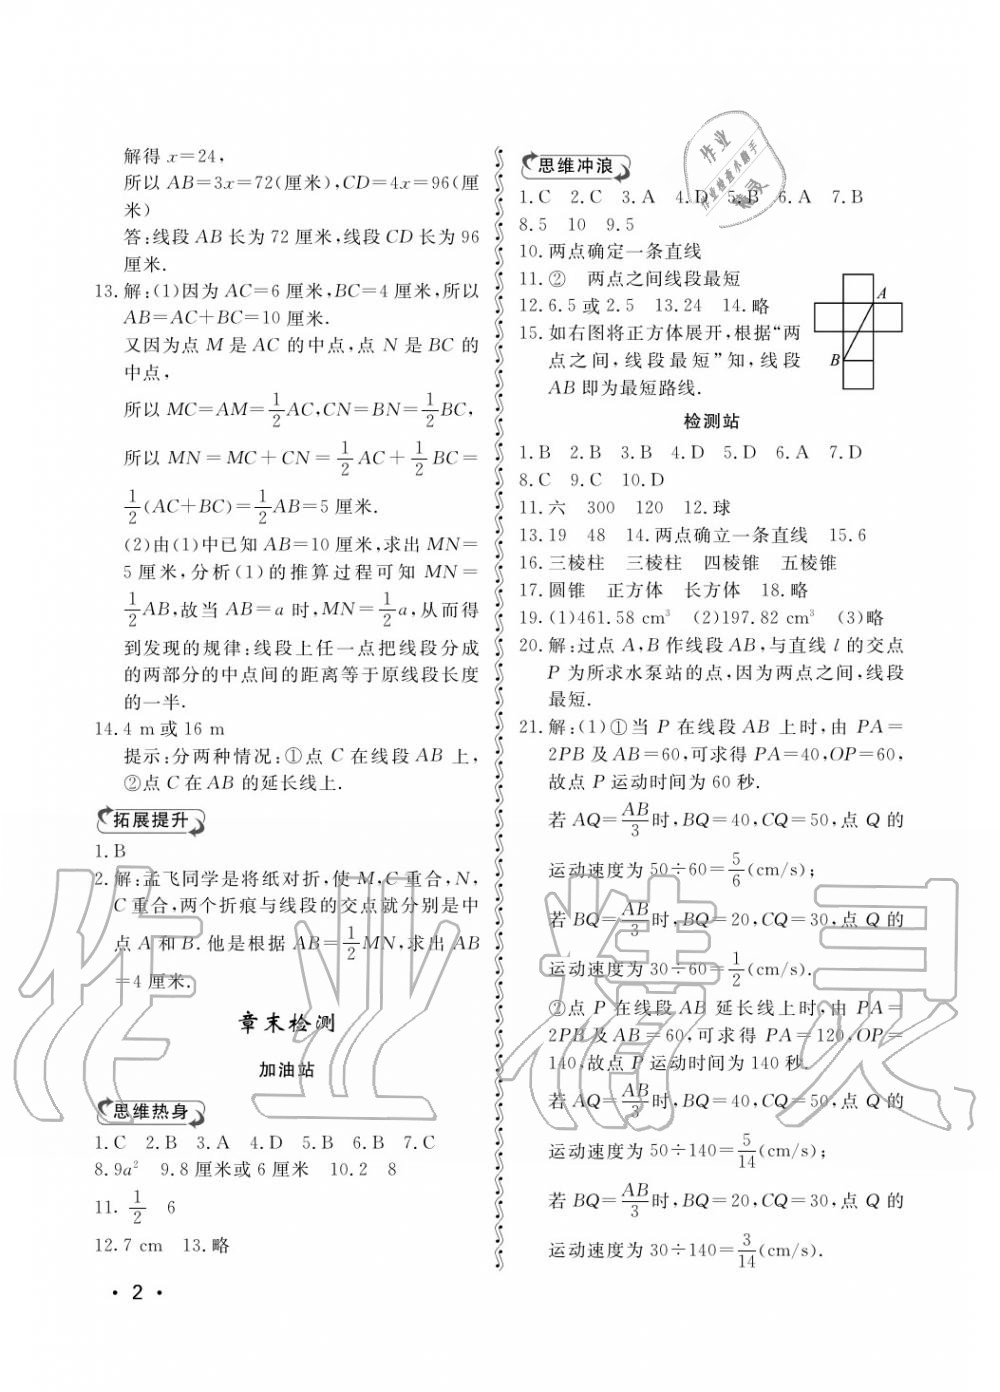 解得 x=24,
所以 AB=3x=72(厘米),CD=4x=96(厘
米)
答:线段 AB 长为 72 厘米,线段 CD 长为 96
厘米.
13.解:(1)因为 AC=6 厘米,BC=4 厘米,所以
AB=AC+BC=10 厘米.
又因为点 M 是 AC 的中点,点 N 是 BC 的
中点,
所以 MC=AM=1/2AC,CN=BN=1/2BC,
所以 MN=MC+CN=1/2AC+1/2BC=
1/2(AC+BC)=1/2AB=5 厘米.
(2)由(1)中已知 AB=10 厘米,求出 MN=
5 厘米,分析(1)的推算过程可知 MN=
1/2AB,故当 AB=a 时,MN=1/2a,从而得
到发现的规律:线段上任一点把线段分成
的两部分的中点间的距离等于原线段长度
的一半.
14.4 m或16 m
提示:分两种情况:①点 C 在线段 AB 上,
②点 C 在 AB 的延长线上.
拓展提升
1.B
2.解:孟飞同学是将纸对折,使 M,C 重合,N,
C 重合,两个折痕与线段的交点就分别是中
点 A 和 B.他是根据 AB=1/2MN,求出 AB
=4 厘米.
章末检测
加油站
思维热身
1.C 2.B 3.A 4.D 5.B 6.B 7.C
8.9a² 9.8 厘米或 6 厘米 10.2 8
11.1/2 6
12.7 cm 13.略
· 2 ·
思维冲浪
1.C 2.C 3.A 4.D 5.B 6.A 7.B
8.5 10 9.5
10.两点确定一条直线
11.② 两点之间线段最短
12.6.5 或 2.5 13.24 14.略
15.如右图将正方体展开,根据“两
点之间,线段最短”知,线段
AB 即为最短路线.
A
B
检测站
1.B 2.B 3.B 4.D 5.D 6.A 7.D
8.C 9.C 10.D
11.六 300 120 12.球
13.19 48 14.两点确立一条直线 15.6
16.三棱柱 三棱柱 四棱锥 五棱锥
17.圆锥 正方体 长方体 18.略
19.(1)461.58 cm³ (2)197.82 cm³ (3)略
20.解:过点 A,B 作线段 AB,与直线 l 的交点
P 为所求水泵站的点,因为两点之间,线段
最短.
21.解:(1)①当 P 在线段 AB 上时,由 PA=
2PB 及 AB=60,可求得 PA=40,OP=60,
故点 P 运动时间为 60 秒.
若 AQ=AB/3时,BQ=40,CQ=50,点 Q 的
运动速度为 50÷60=5/6(cm/s);
若 BQ=AB/3时,BQ=20,CQ=30,点 Q 的
运动速度为 30÷60=1/2(cm/s).
②点 P 在线段 AB 延长线上时,由 PA=
2PB 及 AB=60,可求得 PA=120,OP=
140,故点 P 运动时间为 140 秒.
若 AQ=AB/3时,BQ=40,CQ=50,点 Q 的
运动速度为 50÷140=5/14(cm/s);
若 BQ=AB/3时,BQ=20,CQ=30,点 Q 的
运动速度为 30÷140=3/14(cm/s).
作业精灵
作业
作业检查小助手
精灵